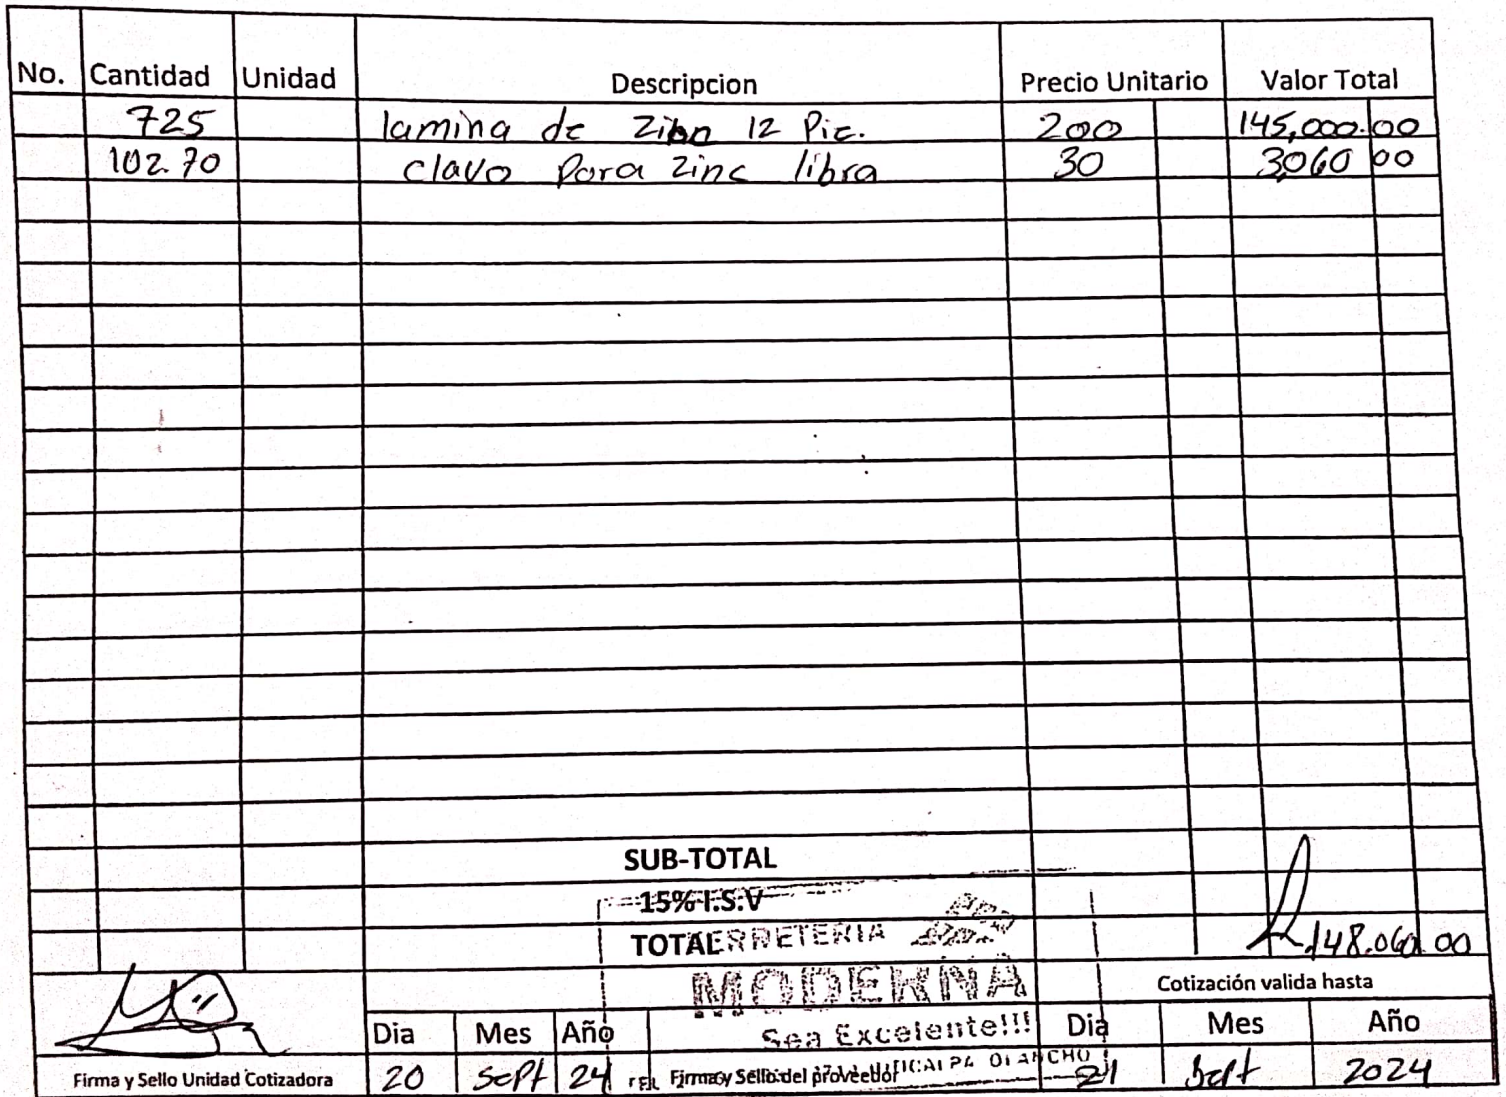 No. Cantidad Unidad Descripcion Precio Unitario Valor Total
725 lamina de Zinn 12 Pie. 200 145,000.00
102.70 clavo para zinc libra 30 3,060 00
SUB-TOTAL
15% I.S.V
TOTAL L.148.060.00
FERRETERIA
MODERNA
Sea Excelente!!!
JUTICALPA OLANCHO
Cotización valida hasta
Dia Mes Año Dia Mes Año
Firma y Sello Unidad Cotizadora 20 Sept 24 Firma y Sello del proveedor 21 Sept 2024